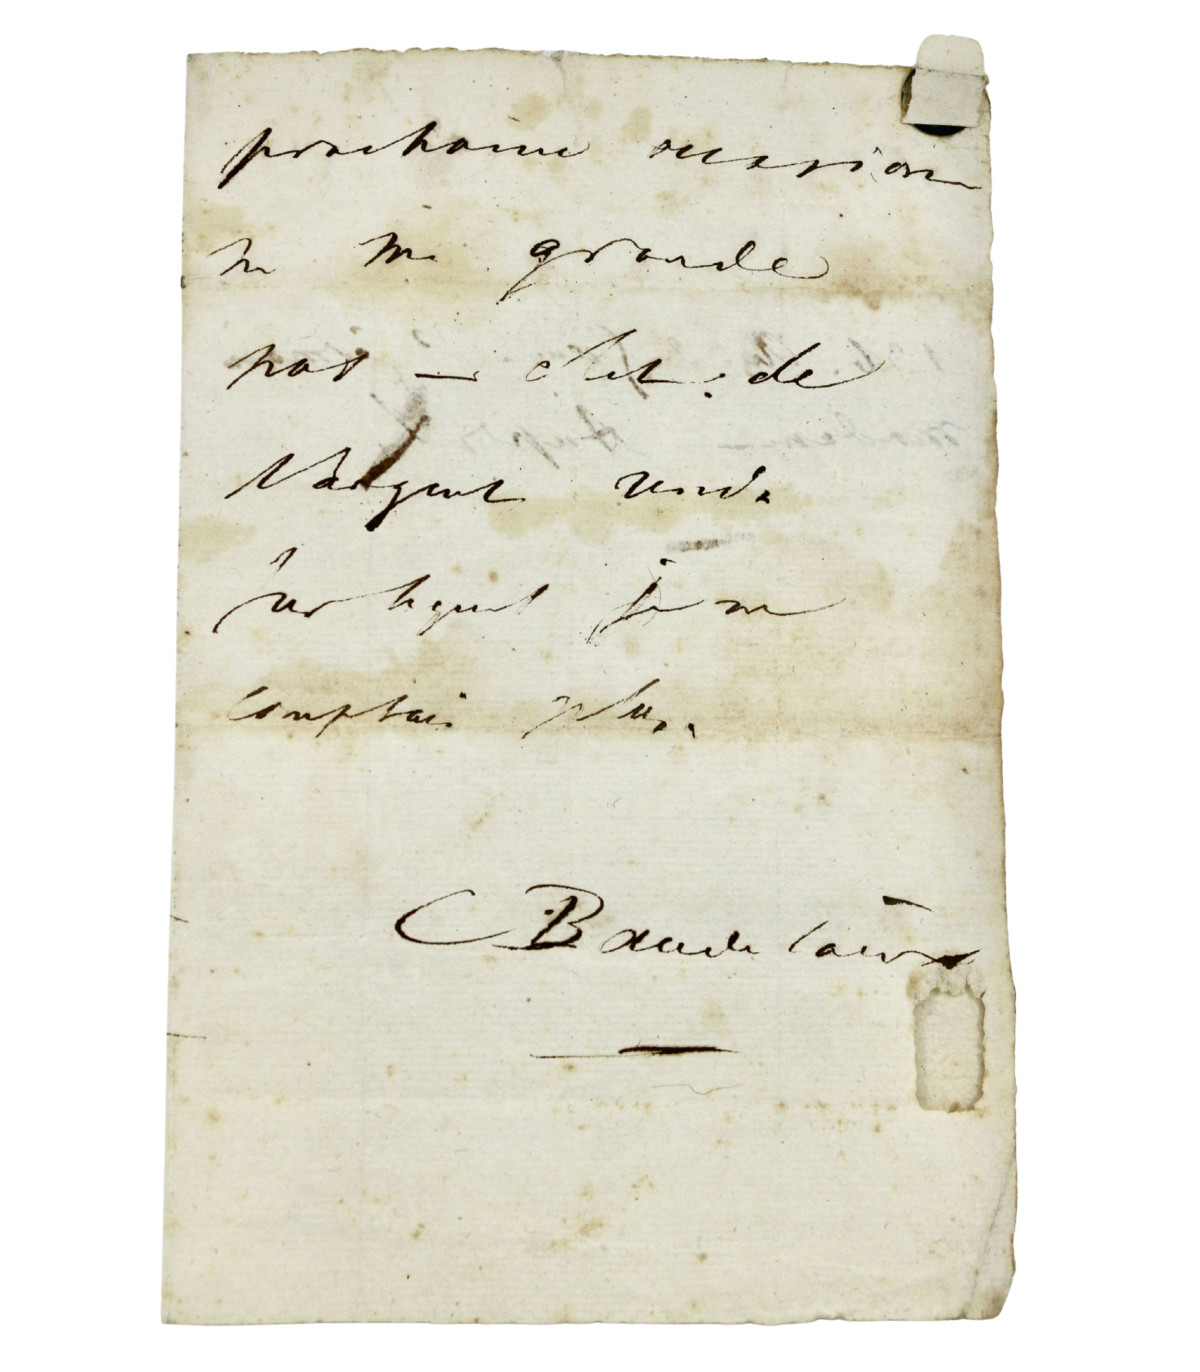 prochaine occasion
ne me gronde
pas — c'est de
l'argent
sur lequel je ne
comptais plus.
C Baudelaire